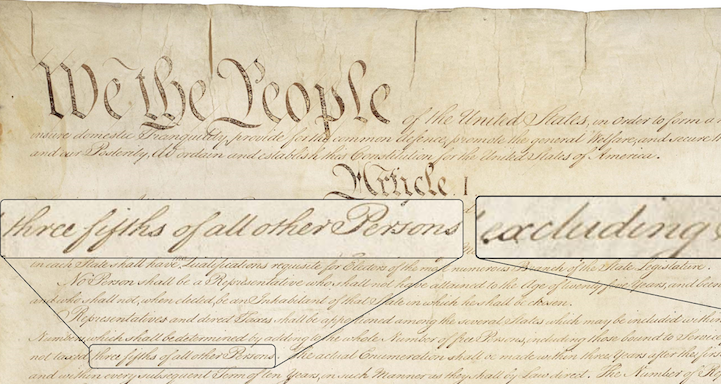 We the People of the United States, in order to form a
insure domestic Tranquility, provide for the common defence, promote the general Welfare, and secure
and our Posterity, do ordain and establish this Constitution for the United States of America.
Article I
three fifths of all other Persons
excluding
in each State shall have Qualifications requisite for Electors of the most numerous Branch of the State Legislature.
No Person shall be a Representative who shall not have attained to the Age of twenty five Years, and
and who shall not, when elected, be an Inhabitant of that State in which he shall be chosen.
Representatives and direct Taxes shall be apportioned among the several States which may be included within
Numbers, which shall be determined by adding to the whole Number of free Persons, including those bound to Service
not taxed, three fifths of all other Persons. The actual Enumeration shall be made within three Years after the
and within every subsequent Term of ten Years, in such Manner as they shall by Law direct. The Number of